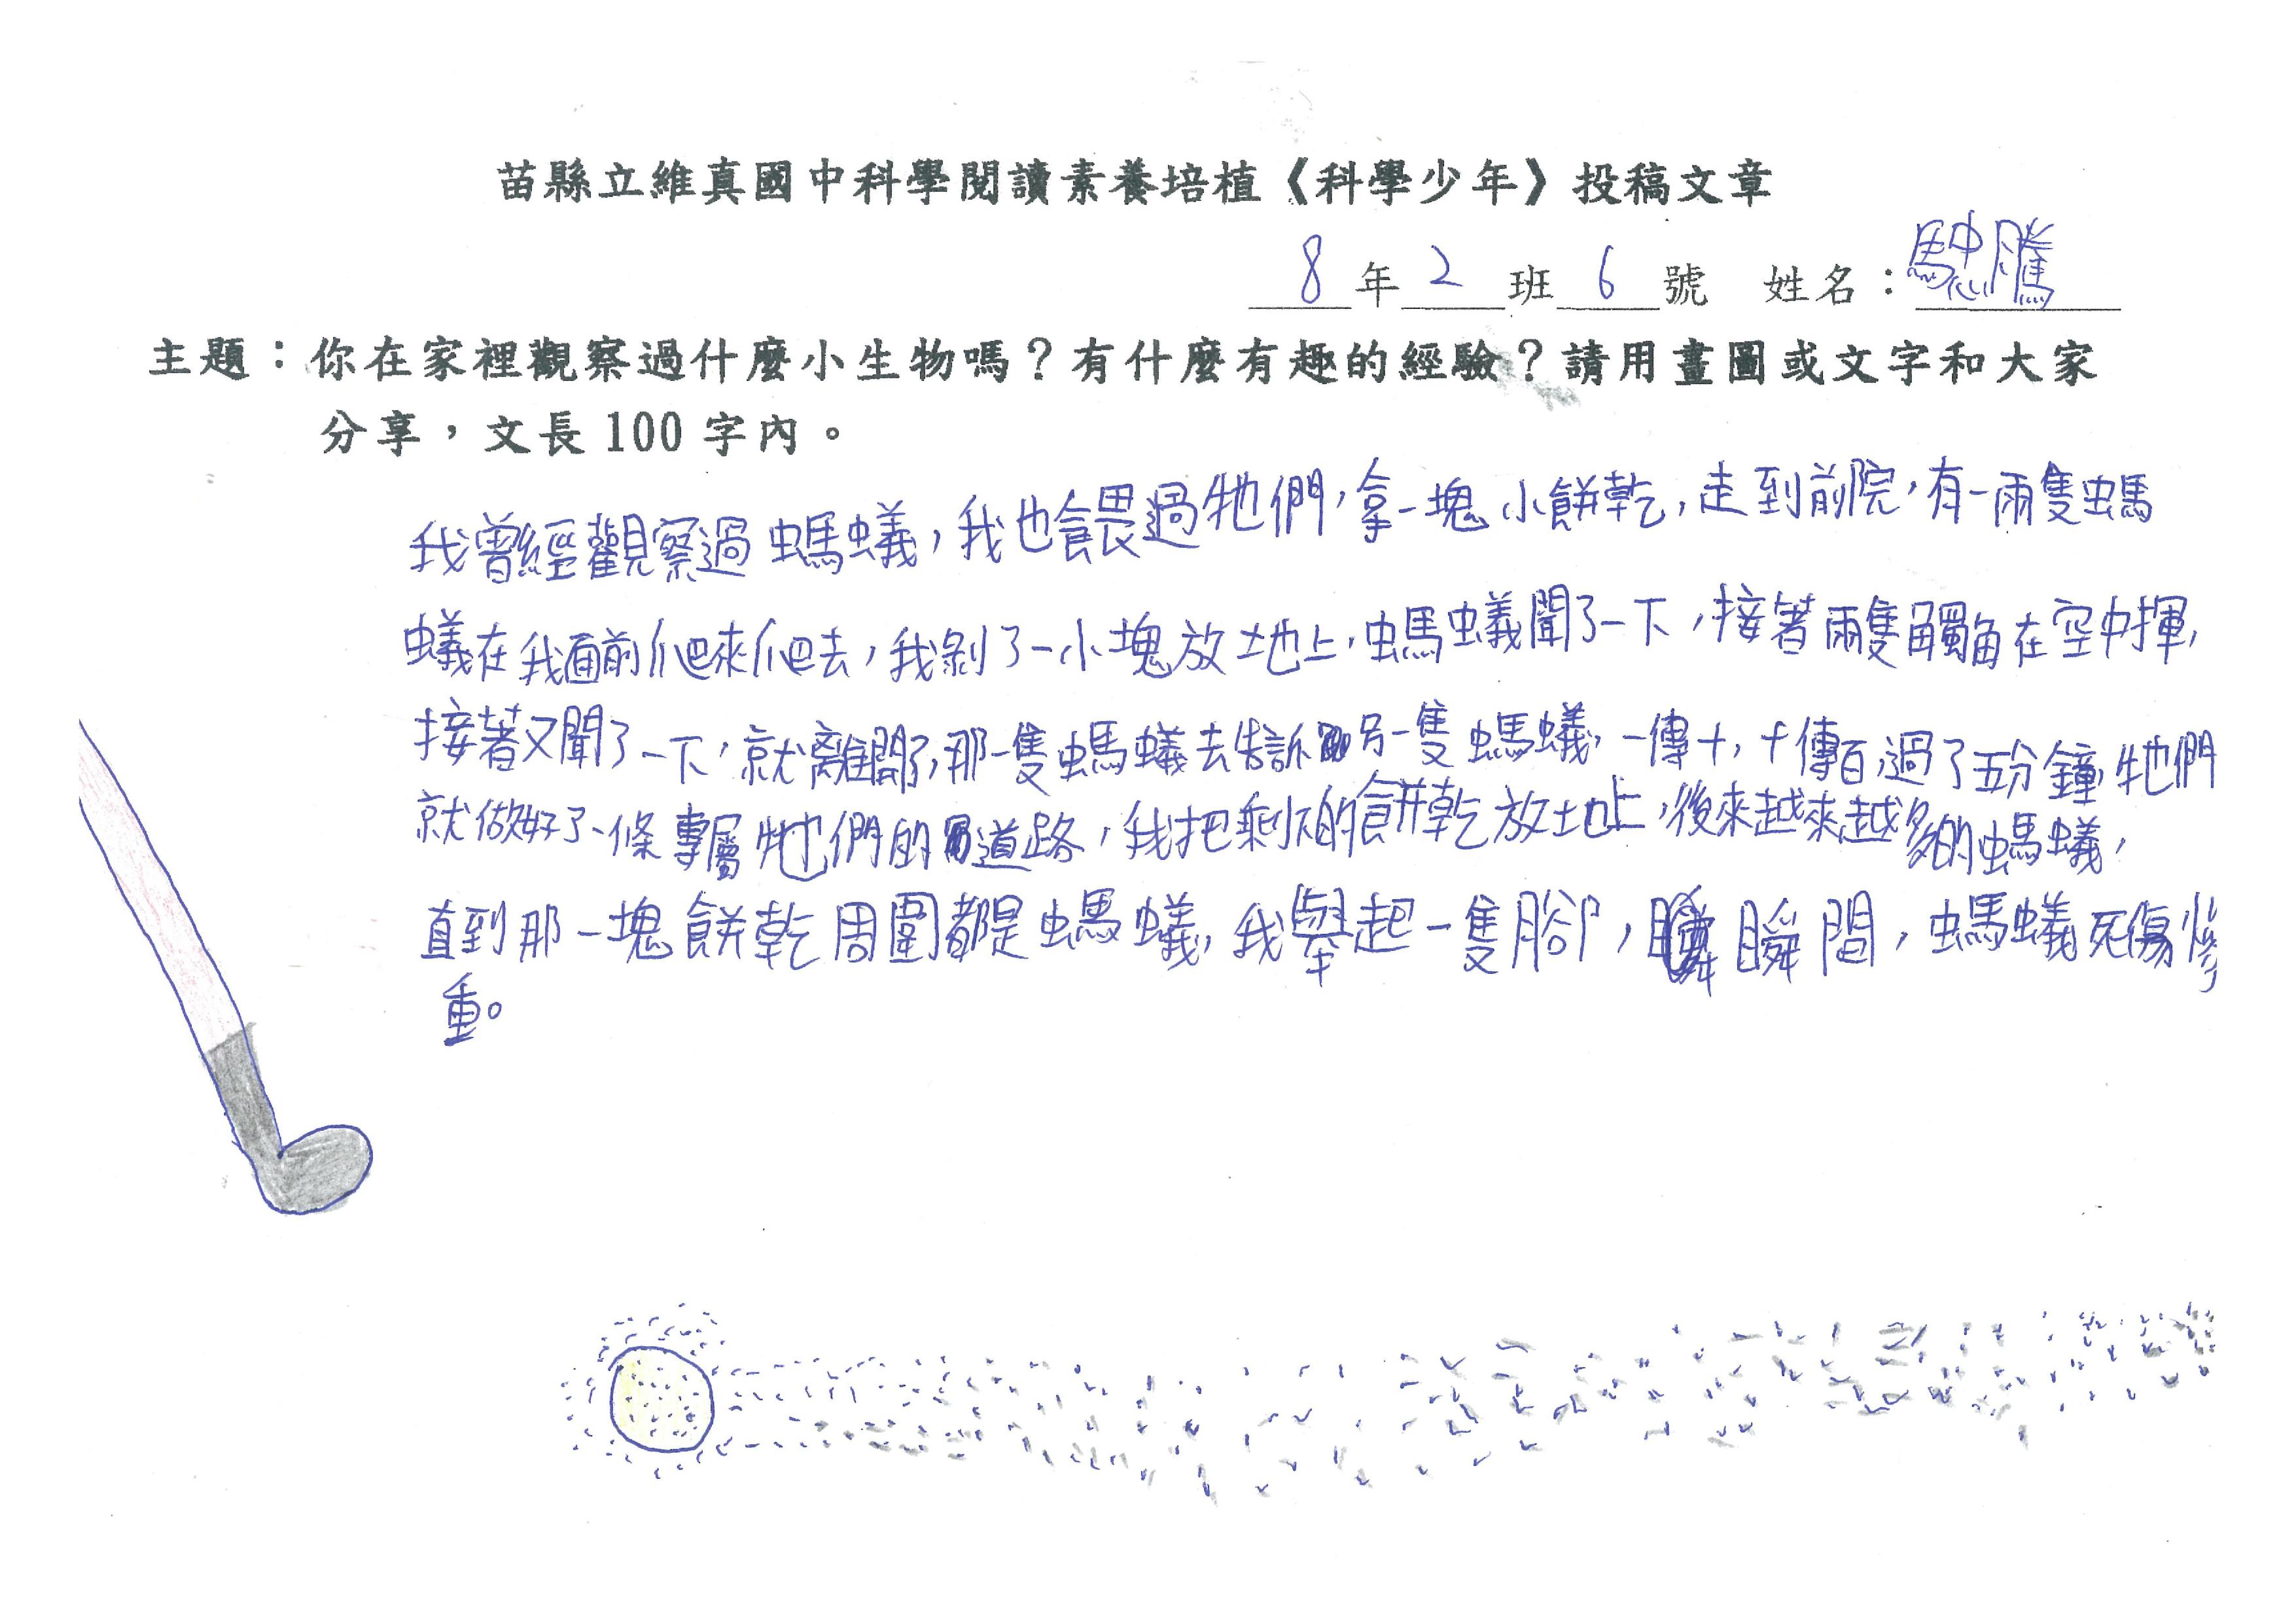 苗縣立維真國中科學閱讀素養培植《科學少年》投稿文章
8年2班6號 姓名：騰
主題：你在家裡觀察過什麼小生物嗎？有什麼有趣的經驗？請用畫圖或文字和大家
分享，文長100字內。
我曾經觀察過螞蟻，我也餵過牠們，拿一塊小餅乾，走到前院，有一兩隻螞
蟻在我面前爬來爬去，我剝了一小塊放地上，螞蟻聞了一下，接著兩隻觸角在空中揮，
接著又聞了一下，就離開了，那一隻螞蟻去告訴另一隻螞蟻，一傳十，十傳百，過了五分鐘，牠們
就做好了一條專屬牠們的道路，我把剩下的餅乾放地上，後來越來越多的螞蟻，
直到那一塊餅乾周圍都是螞蟻，我舉起一隻腳，瞬間，螞蟻死傷慘
重。